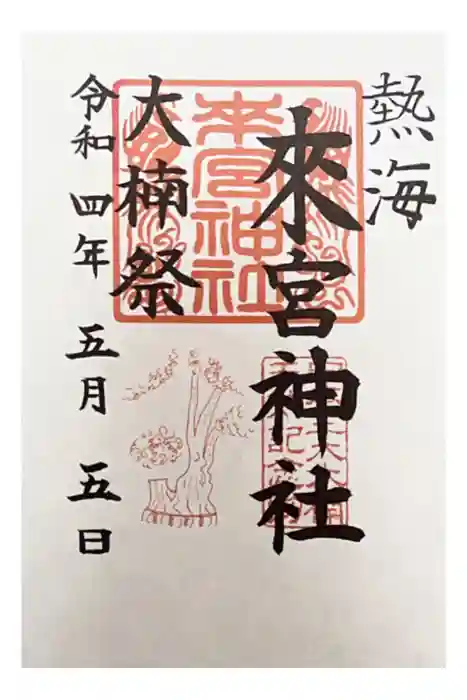 熱海
來宮神社
大楠祭
令和四年五月五日
來宮神社